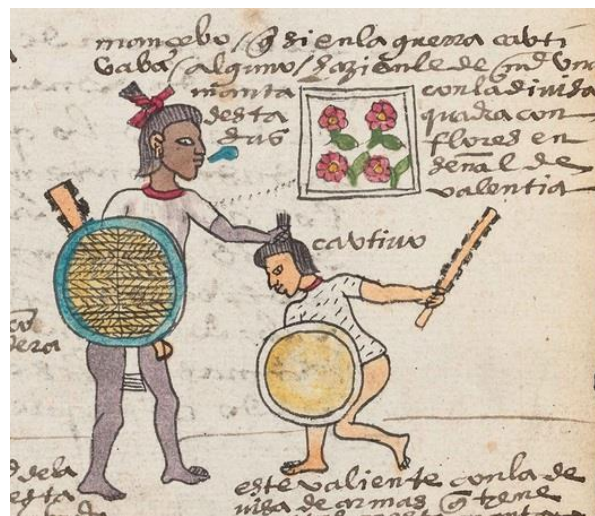 mançebo / q̃ si en la guerra cauti
vaba / alguno / hazienle de md una
manta con la divisa
desta quadra con
flores en
señal de
valentia
cautivo
vera
dela
esta
este valiente con la de
visa de armas q̃ tiene